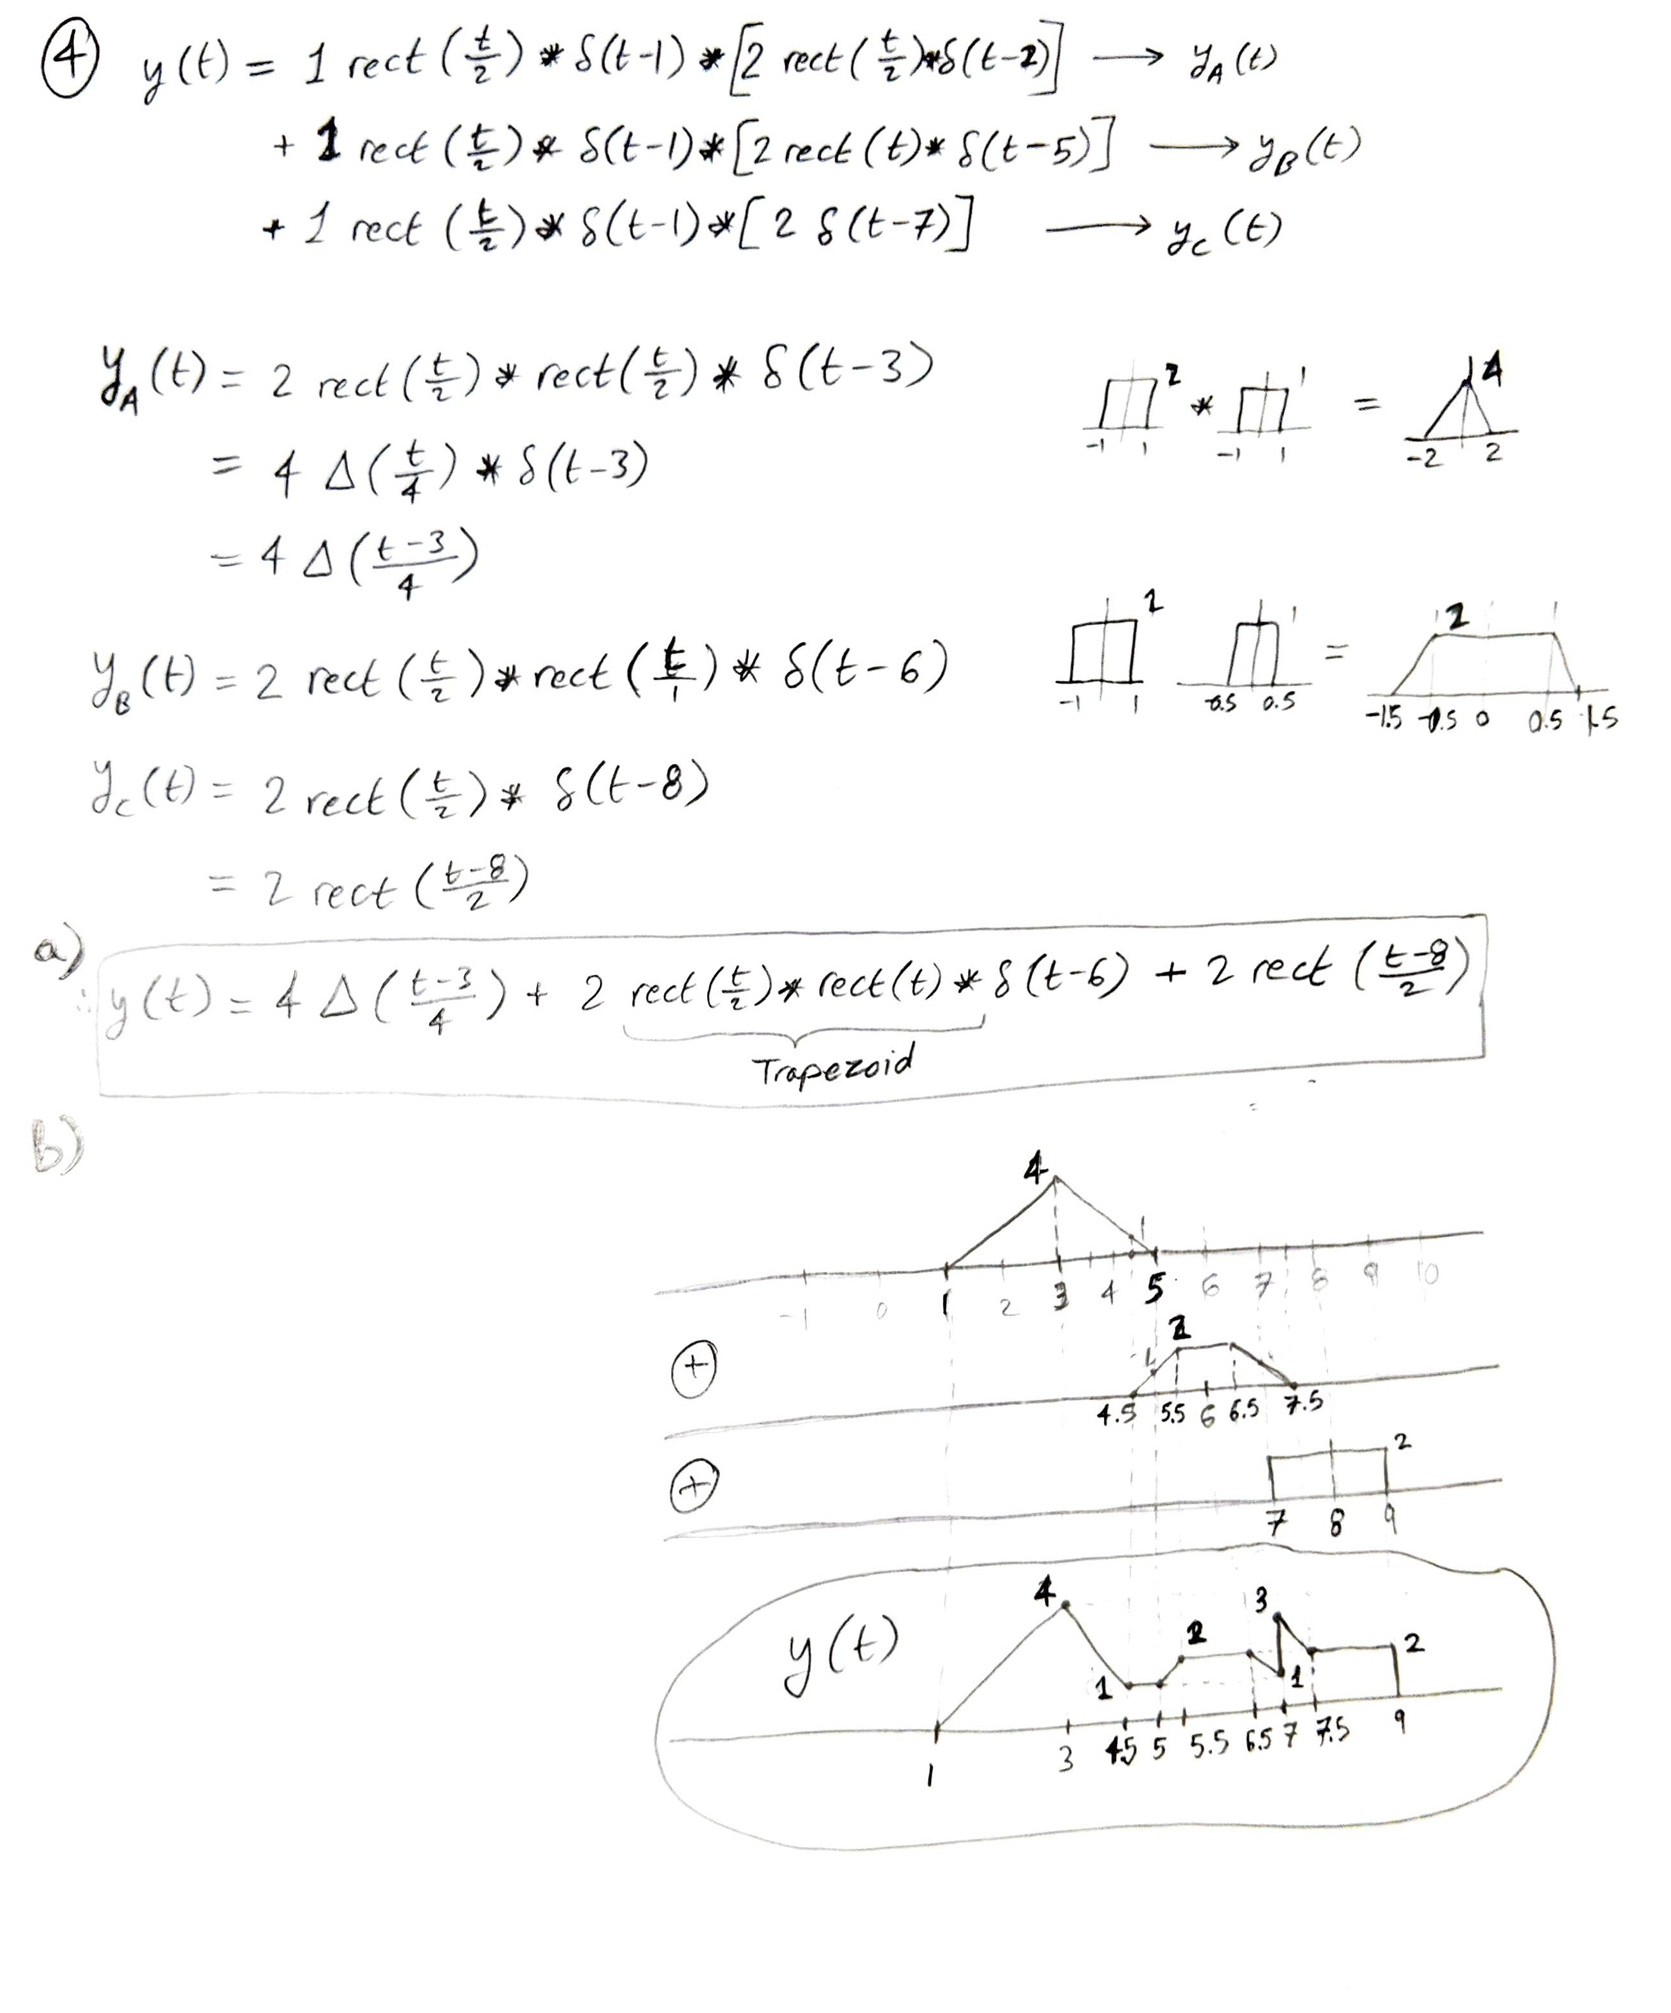 ④ y(t) = 1 rect(t/2) * δ(t-1) * [2 rect(t/2)*δ(t-2)] → y_A(t)
+ 1 rect(t/2) * δ(t-1) * [2 rect(t) * δ(t-5)] → y_B(t)
+ 1 rect(t/2) * δ(t-1) * [2 δ(t-7)] → y_C(t)
y_A(t) = 2 rect(t/2) * rect(t/2) * δ(t-3)
-1 1 2 * -1 1 1 = -2 2 4
= 4 Δ(t/4) * δ(t-3)
= 4 Δ((t-3)/4)
y_B(t) = 2 rect(t/2) * rect(t/1) * δ(t-6)
-1 1 2 -0.5 0.5 1 = 2 -1.5 -0.5 0 0.5 1.5
y_C(t) = 2 rect(t/2) * δ(t-8)
= 2 rect((t-8)/2)
a)
∴ y(t) = 4 Δ((t-3)/4) + 2 rect(t/2) * rect(t) * δ(t-6) + 2 rect((t-8)/2)
Trapezoid
b)
4
1
-1 0 1 2 3 4 5 6 7 8 9 10
+ 1 2
4.5 5.5 6 6.5 7.5
+ 2
7 8 9
y(t) 4 1 2 3 1 2
1 3 4.5 5 5.5 6.5 7 7.5 9